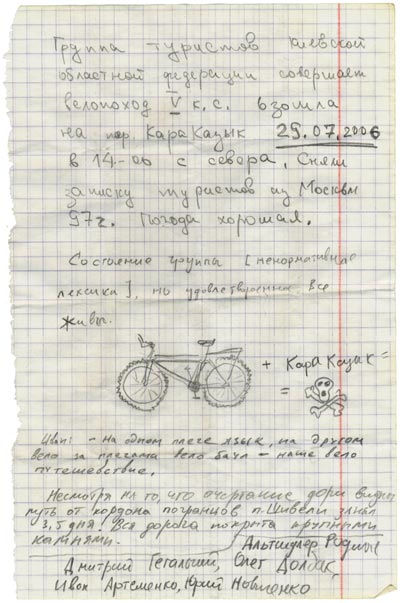 Группа туристов Киевской
областной федерации совершает
велопоход V к.с. взошла
на пер. КараКазык 25.07.2006
в 14-00 с севера. Сняли
записку туристов из Москвы
97г. Погода хорошая.
Состояние группы [ненормативная
лексика], но удовлетворение все
живы.
+ КараКазык =
=
- На одном плече язык, на другом
вело за плечами вело баул - наше вело
путешествие.
Несмотря на то, что очертание дороги видны
путь от кордона погранцов п. Шивели занял
3,5 дня. Вся дорога покрыта крупными
камнями.
Альтшулер Родион
Дмитрий Олег Долбак,
Иван Артеменко, Юрий